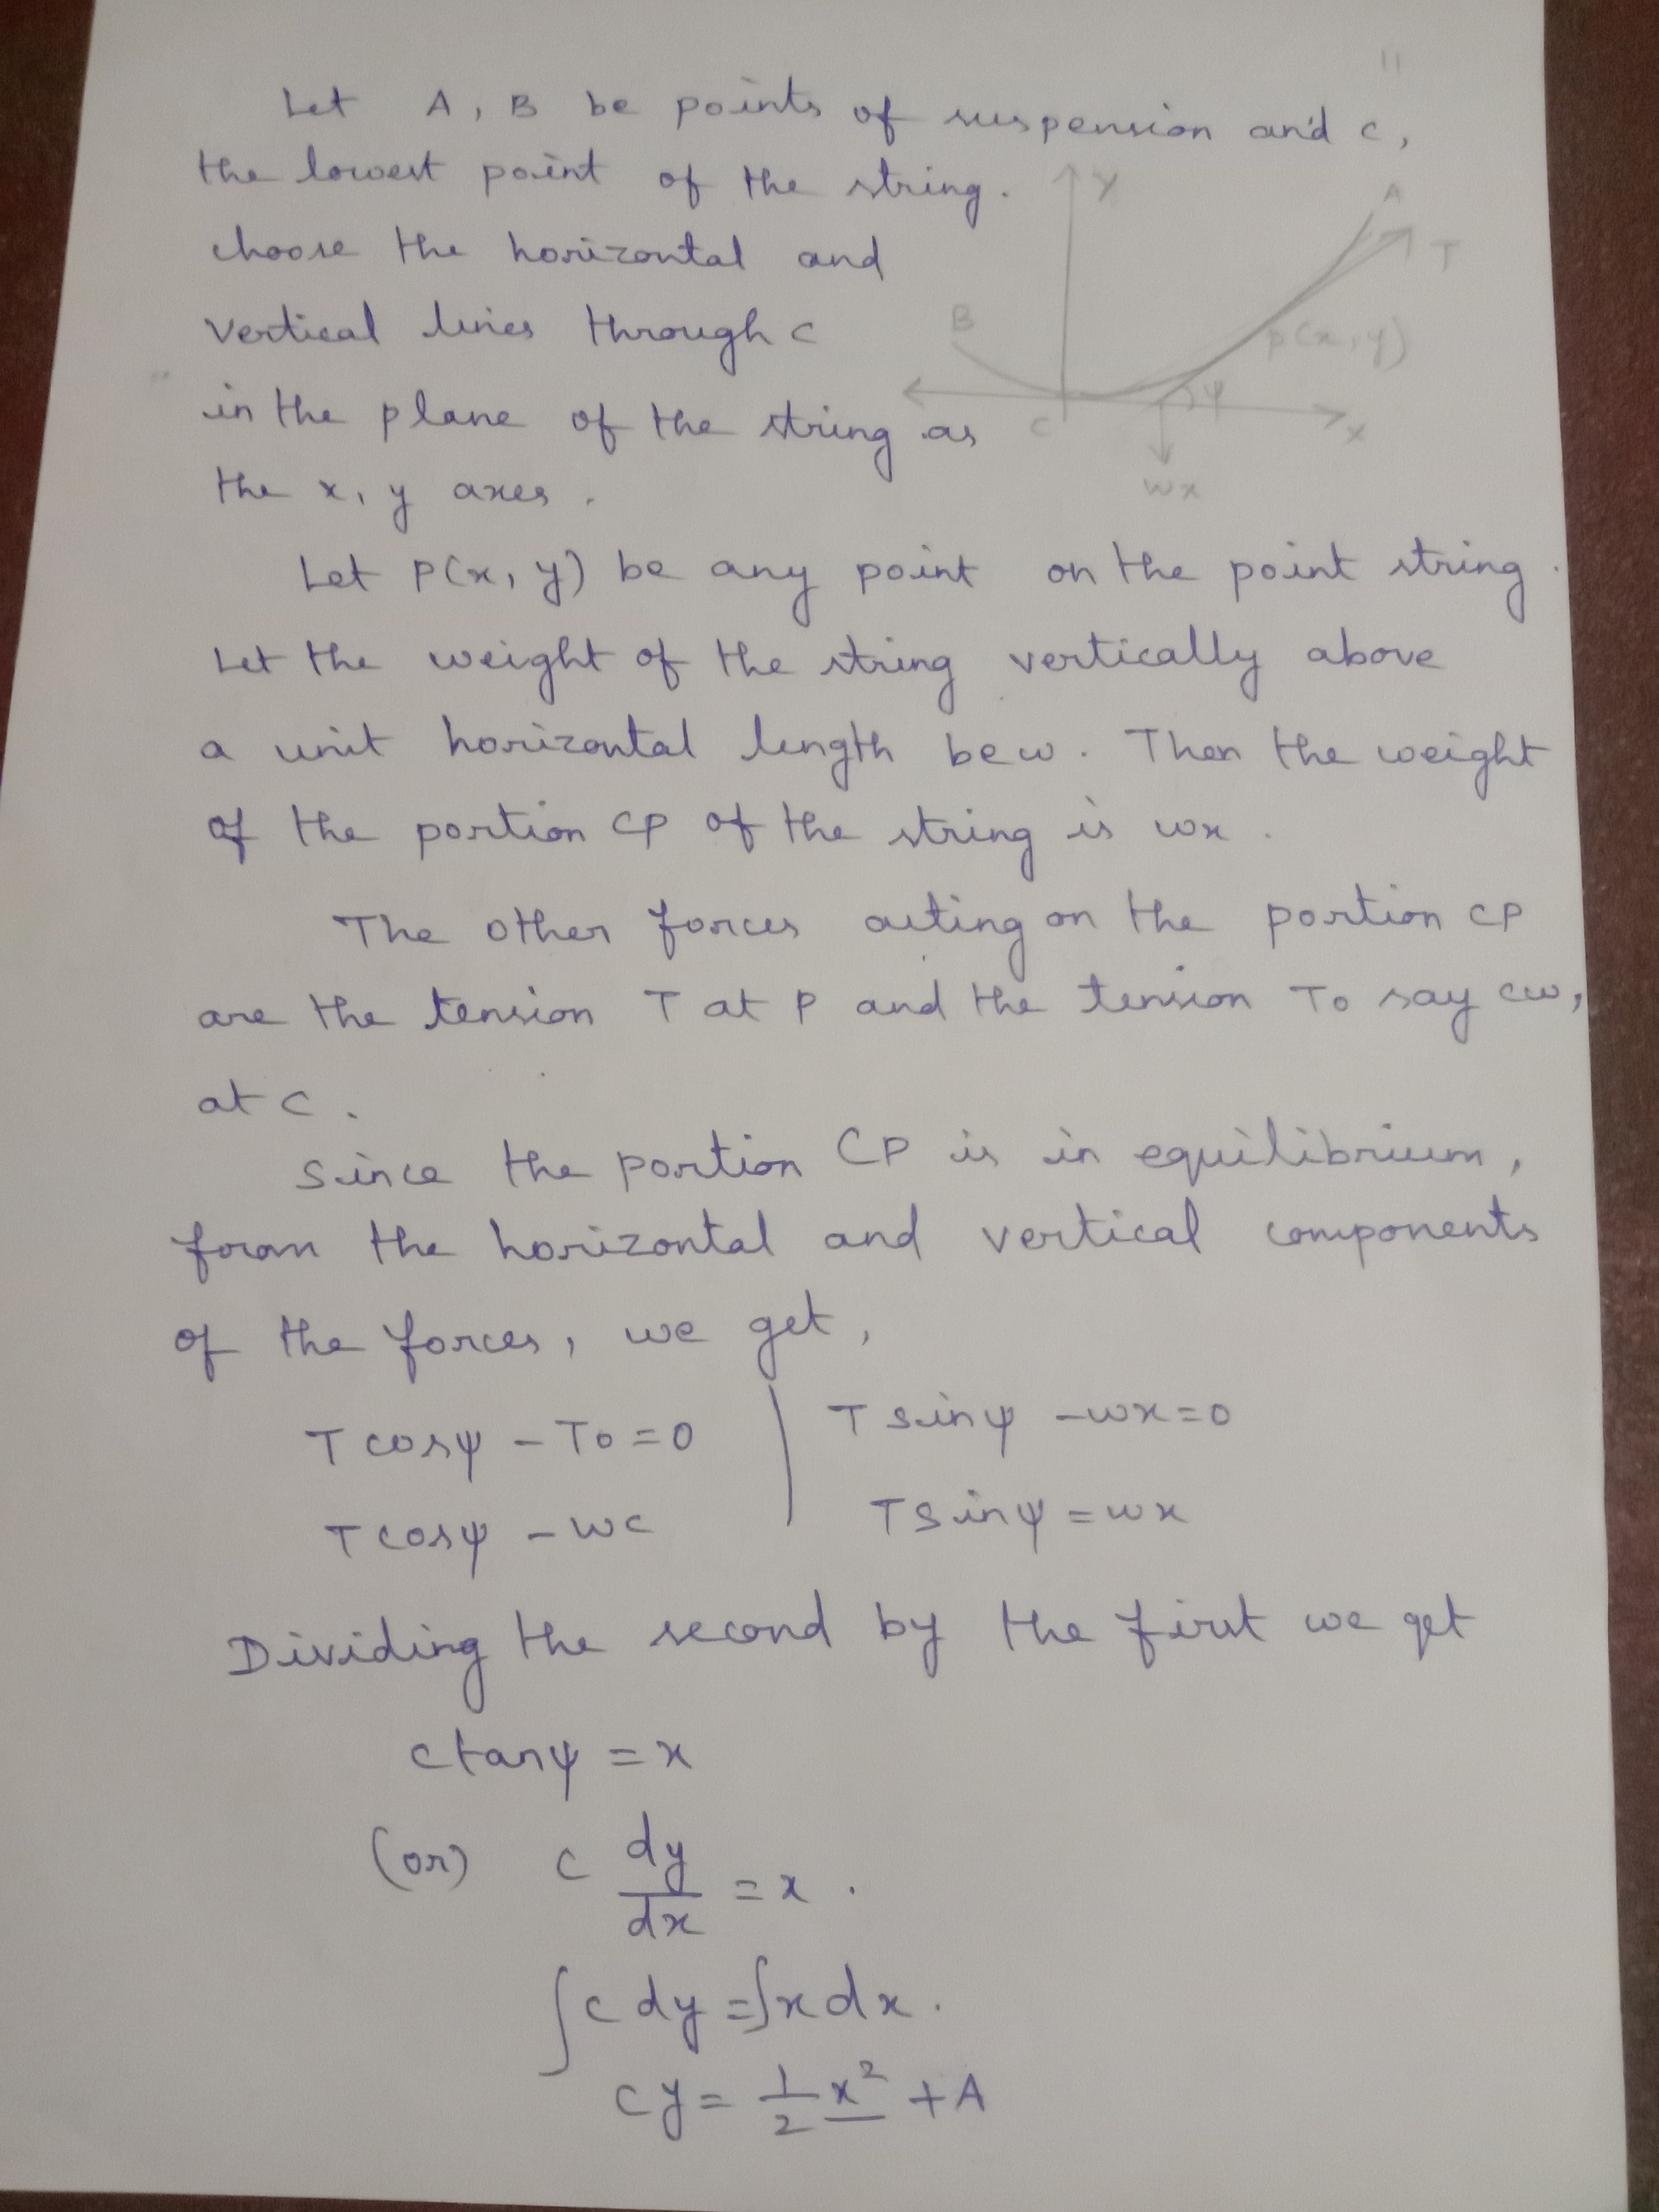 11
Let A, B be points of suspension and C,
the lowest point of the string.
choose the horizontal and
vertical lines through C
in the plane of the string as
the x, y axes.
Y
A
T
B
P(x, y)
ψ
C
x
wx
Let P(x, y) be any point on the point string.
Let the weight of the string vertically above
a unit horizontal length be w. Then the weight
of the portion CP of the string is wx.
The other forces acting on the portion CP
are the tension T at P and the tension To say cw,
at C.
Since the portion CP is in equilibrium,
from the horizontal and vertical components
of the forces, we get,
T cosψ - To = 0 | T sinψ - wx = 0
T cosψ - wc | T sinψ = wx
Dividing the second by the first we get
c tanψ = x
(or) c dy/dx = x.
∫c dy = ∫x dx.
cy = 1/2 x² + A